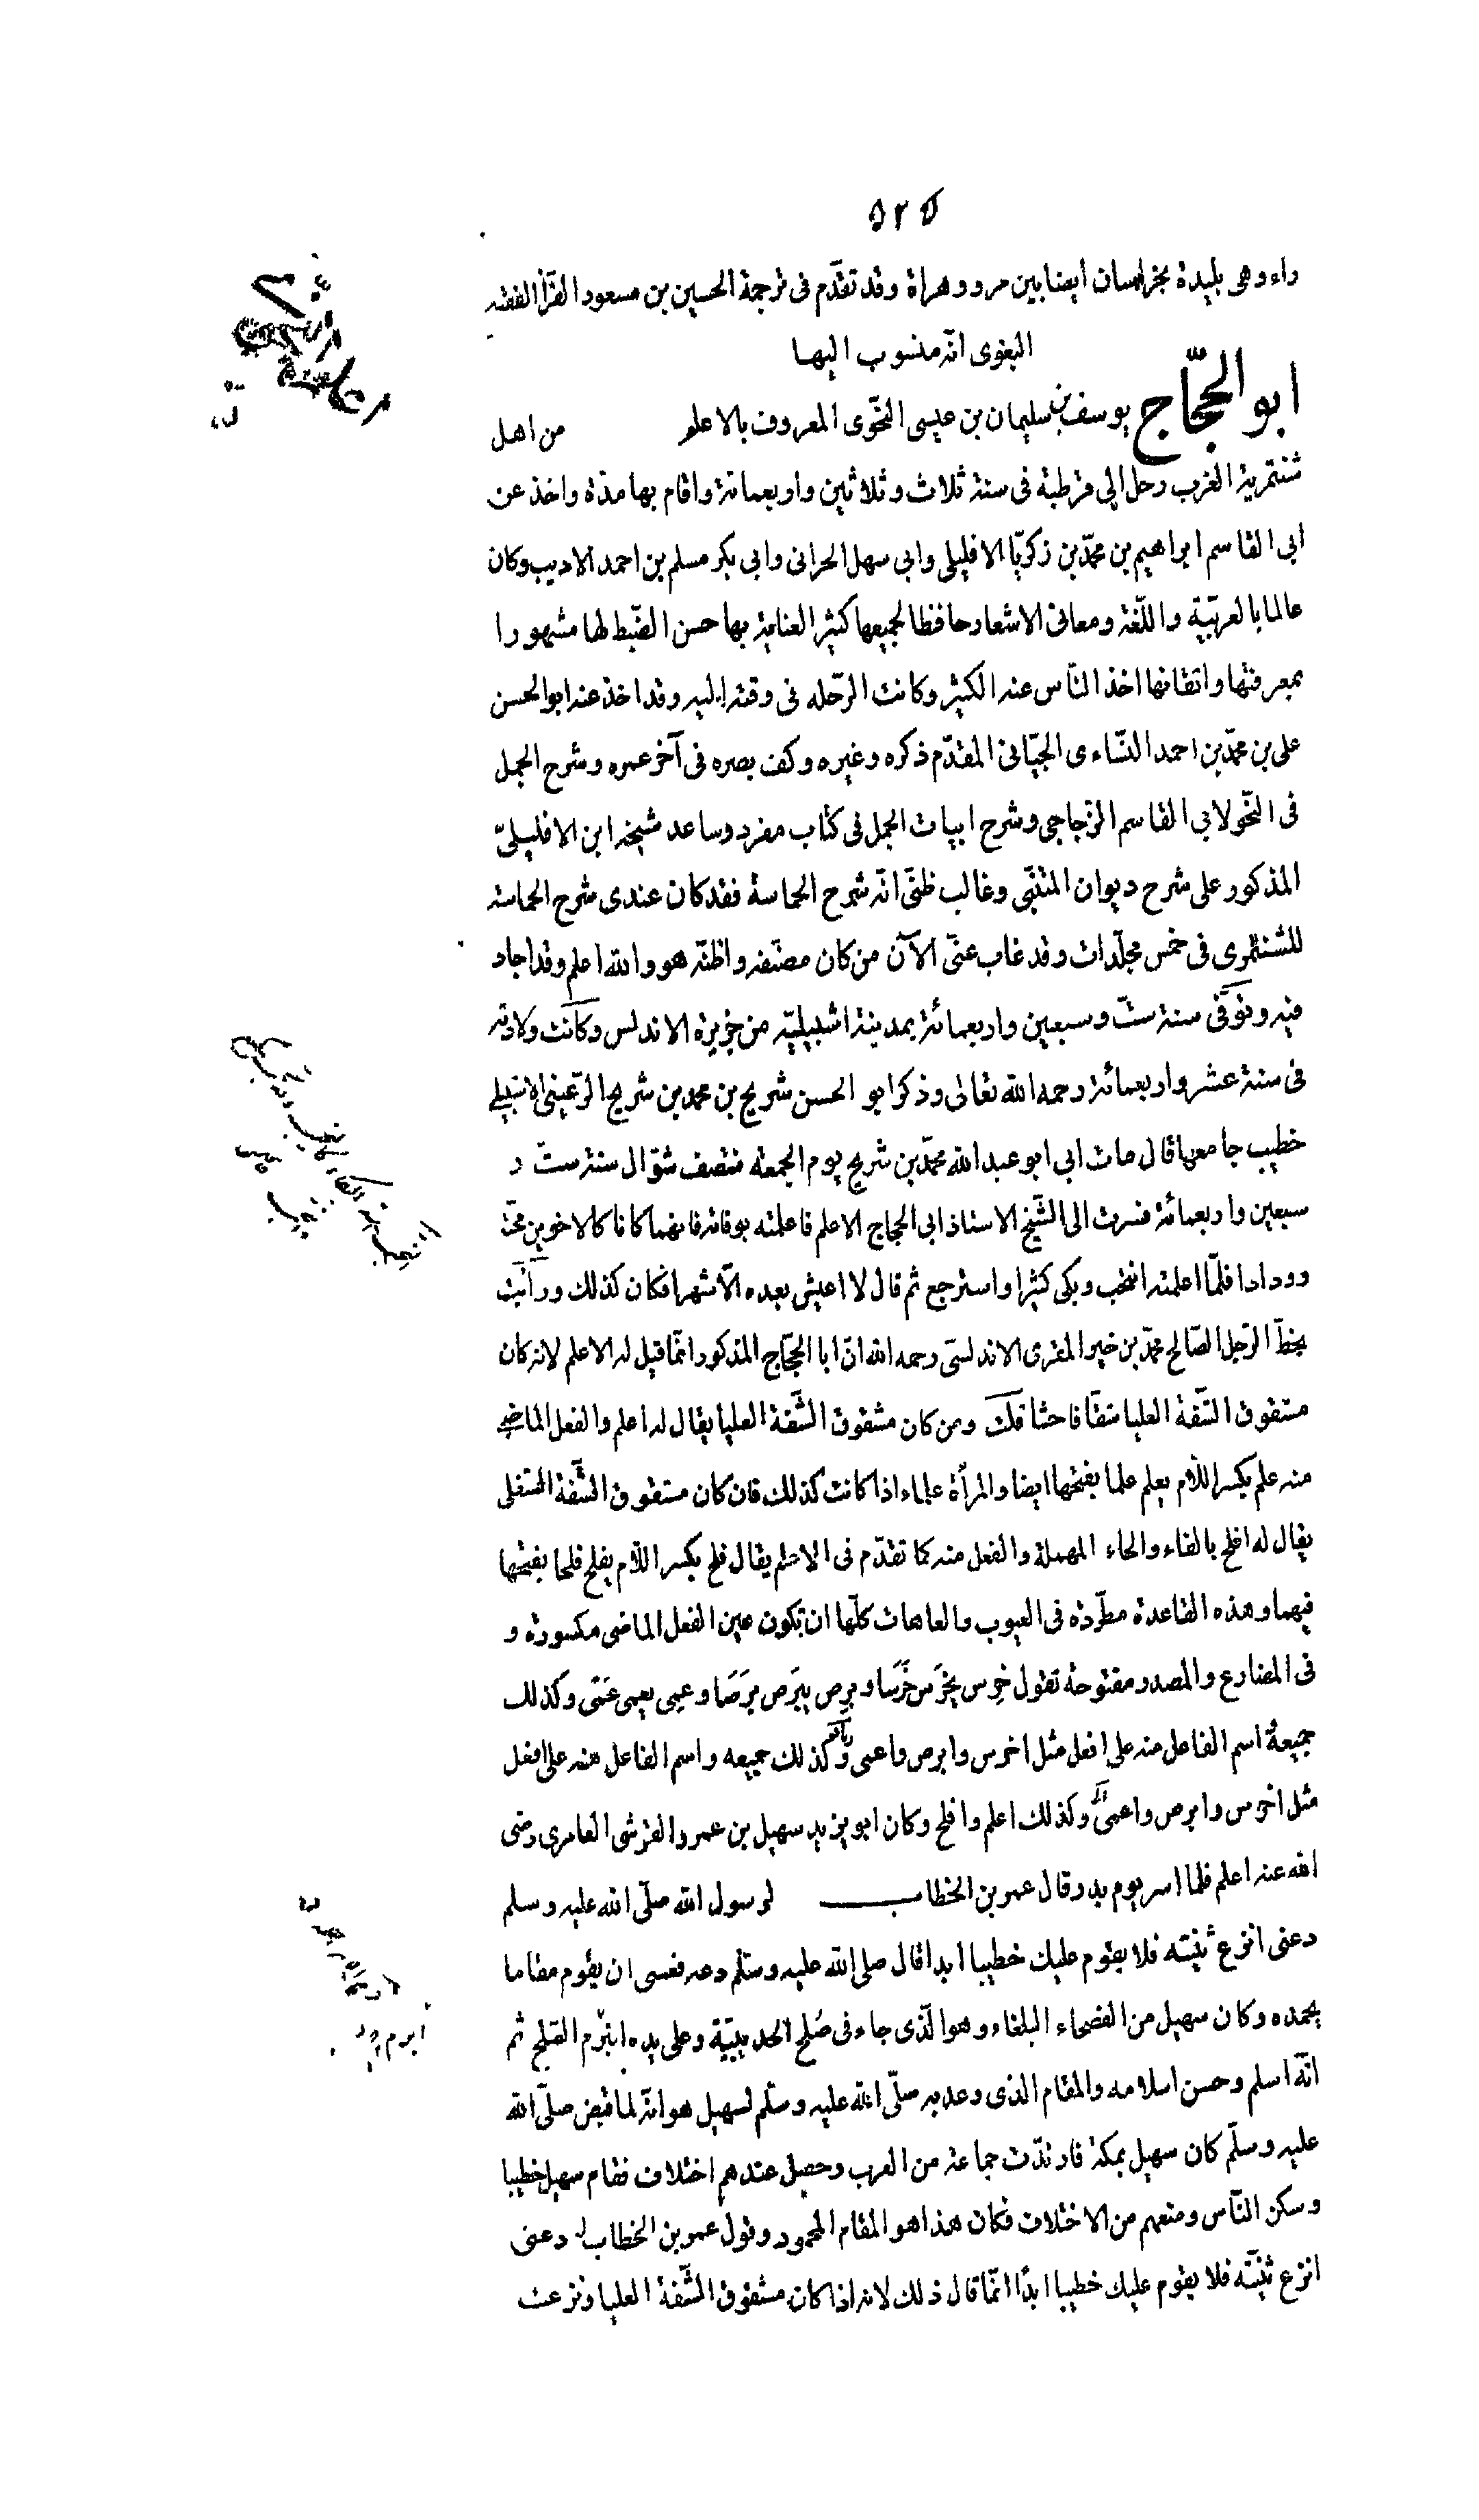 ٥٢٥
راء وهى بليدة بخراسان ايضا بين مرو وهراة وقد تقدّم فى ترجمة الحسين بن مسعود الفرّا الفقيه
البغوى انّه منسوب اليها
ابو الحجّاج يوسف بن سليمان بن عيسى النحّوى المعروف بالاعلم من اهل
شنتمرية الغرب رحل الى قرطبة فى سنة ثلاث وثلاثين واربعمائة واقام بها مدّة واخذ عن
ابى القاسم ابراهيم بن محمّد بن زكريّا الافليلى وابى سهل الحرانى وابى بكر مسلم بن احمد الاديب وكان
عالما بالعربّية واللّغة ومعانى الاشعار حافظا لجميعها كثير العناية بها حسن الضّبط لها مشهورا
بمعرفتها واتقانها اخذ النّاس عنه الكثير وكانت الرّحله فى وقته اليه وقد اخذ عنه ابو الحسن
على بن محمّد بن احمد الغسّاءى الجيّانى المقدّم ذكره وغيره وكف بصره فى آخر عمره وشرح الجمل
فى النّحو لابى القاسم الزّجاجى وشرح ابيات الجمل فى كتاب مفرد وساعد شيخه ابن الافليلىّ
المذكور على شرح ديوان المتنبّى وغالب ظنّى انّه شرح الحماسة فقد كان عندى شرح الحماسة
للشنتمرى فى خمس مجلّدات وقد غاب عنّى الآن من كان مصنّفه واظنّه هو والله اعلم وقد اجاد
فيه وتوفّى سنة ستّ وسبعين واربعمائة بمدينة اشبيليّه من جزيرة الاندلس وكانت ولادته
فى سنة عشر واربعمائة رحمه الله تعالى وذكر ابو الحسن شريح بن محمد بن شريح الرّعينى الاشبيلى
خطيب جامعها قال مات ابى ابو عبد الله محمّد بن شريح يوم الجمعه منتصف شوّال سنة ستّ و
سبعين واربعمائة فسرت الى الشّيخ الاستاذ ابى الحجاج الاعلم فاعلمته بوفاته فانهما كانا كالاخوين محبّة
وودادا فلمّا اعلمته انتحب وبكى كثيرا واسترجع ثم قال لا اعيش بعده الّا شهرا فكان كذلك ورأيت
بخطّ الرّجل الصّالح محمّد بن خير المقرى الاندلسىّ رحمه الله انّ ابا الحجّاج المذكور انّما قيل له الاعلم لانّه كان
مشقوق الشّفة العليا شقّا فاحشا قلت ومن كان مشقوق الشّفة العليا يقال له اعلم والفعل الماضى
منه علم بكسر اللّام يعلم علما بفتحها ايضا والمرأة علماء اذا كانت كذلك فان كان مشقوق الشّفة السّفلى
يقال له افلح بالفاء والحاء المهملة والفعل منه كما تقدّم فى الاعلم يقال فلح بكسر اللّام يفلح فلحا بفتحها
فيهما وهذه القاعدة مطّردة فى العيوب والعاهات كلّها ان تكون عين الفعل الماضى مكسورة و
فى المضارع والمصدر مفتوحة تقول خرس يخرَس خَرَسًا وبرِص يبرَص برَصًا وعمى يعمى عَمًى وكذلك
جميعهُ اسم الفاعل منه على افعل مثل اخرس وابرص واعمى وكذلك جميعه واسم الفاعل منه على افعل
مثل اخرس وابرص واعمى وكذلك اعلم وافلح وكان ابو يزيد سهيل بن عمرو القرشى العامرى رضى
الله عنه اعلم فلما اسر يوم بدر قال عمر بن الخطاب لرسول الله صلّى الله عليه وسلم
دعنى انزع ثنيّته فلا يقوم عليك خطيبا ابدا قال صلى الله عليه وسلّم دعه فعسى ان يقوم مقاما
يحمده وكان سهيل من الفصحاء البلغاء وهو الّذى جاء فى صُلح الحديبيّة وعلى يده ابنرم الصّلح ثم
انّه اسلم وحسن اسلامه والمقام الذى وعد به صلّى الله عليه وسلّم لسهيل هو انّه لما قبض صلّى الله
عليه وسلّم كان سهيل بمكة فارتدّت جماعة من العرب وحصل عندهم اختلاف فقام سهيل خطيبا
وسكن النّاس ومنعهم من الاختلاف فكان هذا هو المقام المحمود وقول عمر بن الخطاب دعنى
انزع ثنيّته فلا يقوم عليك خطيبا ابدًا انّما قال ذلك لانه اذا كان مشقوق الشّفة العليا ونزعت